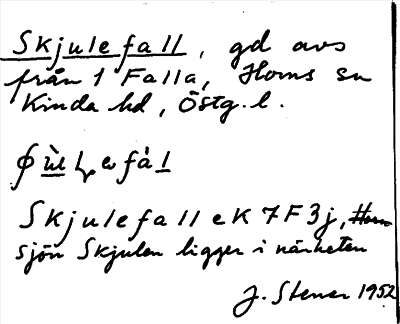 Skjulefall, gd avs
från 1 Falla, Horns sn
Kinda hd, Östg. l.
Skjulefall ek 7F3j, Horn
sjön Skjulen ligger i närheten
J. Stener 1952